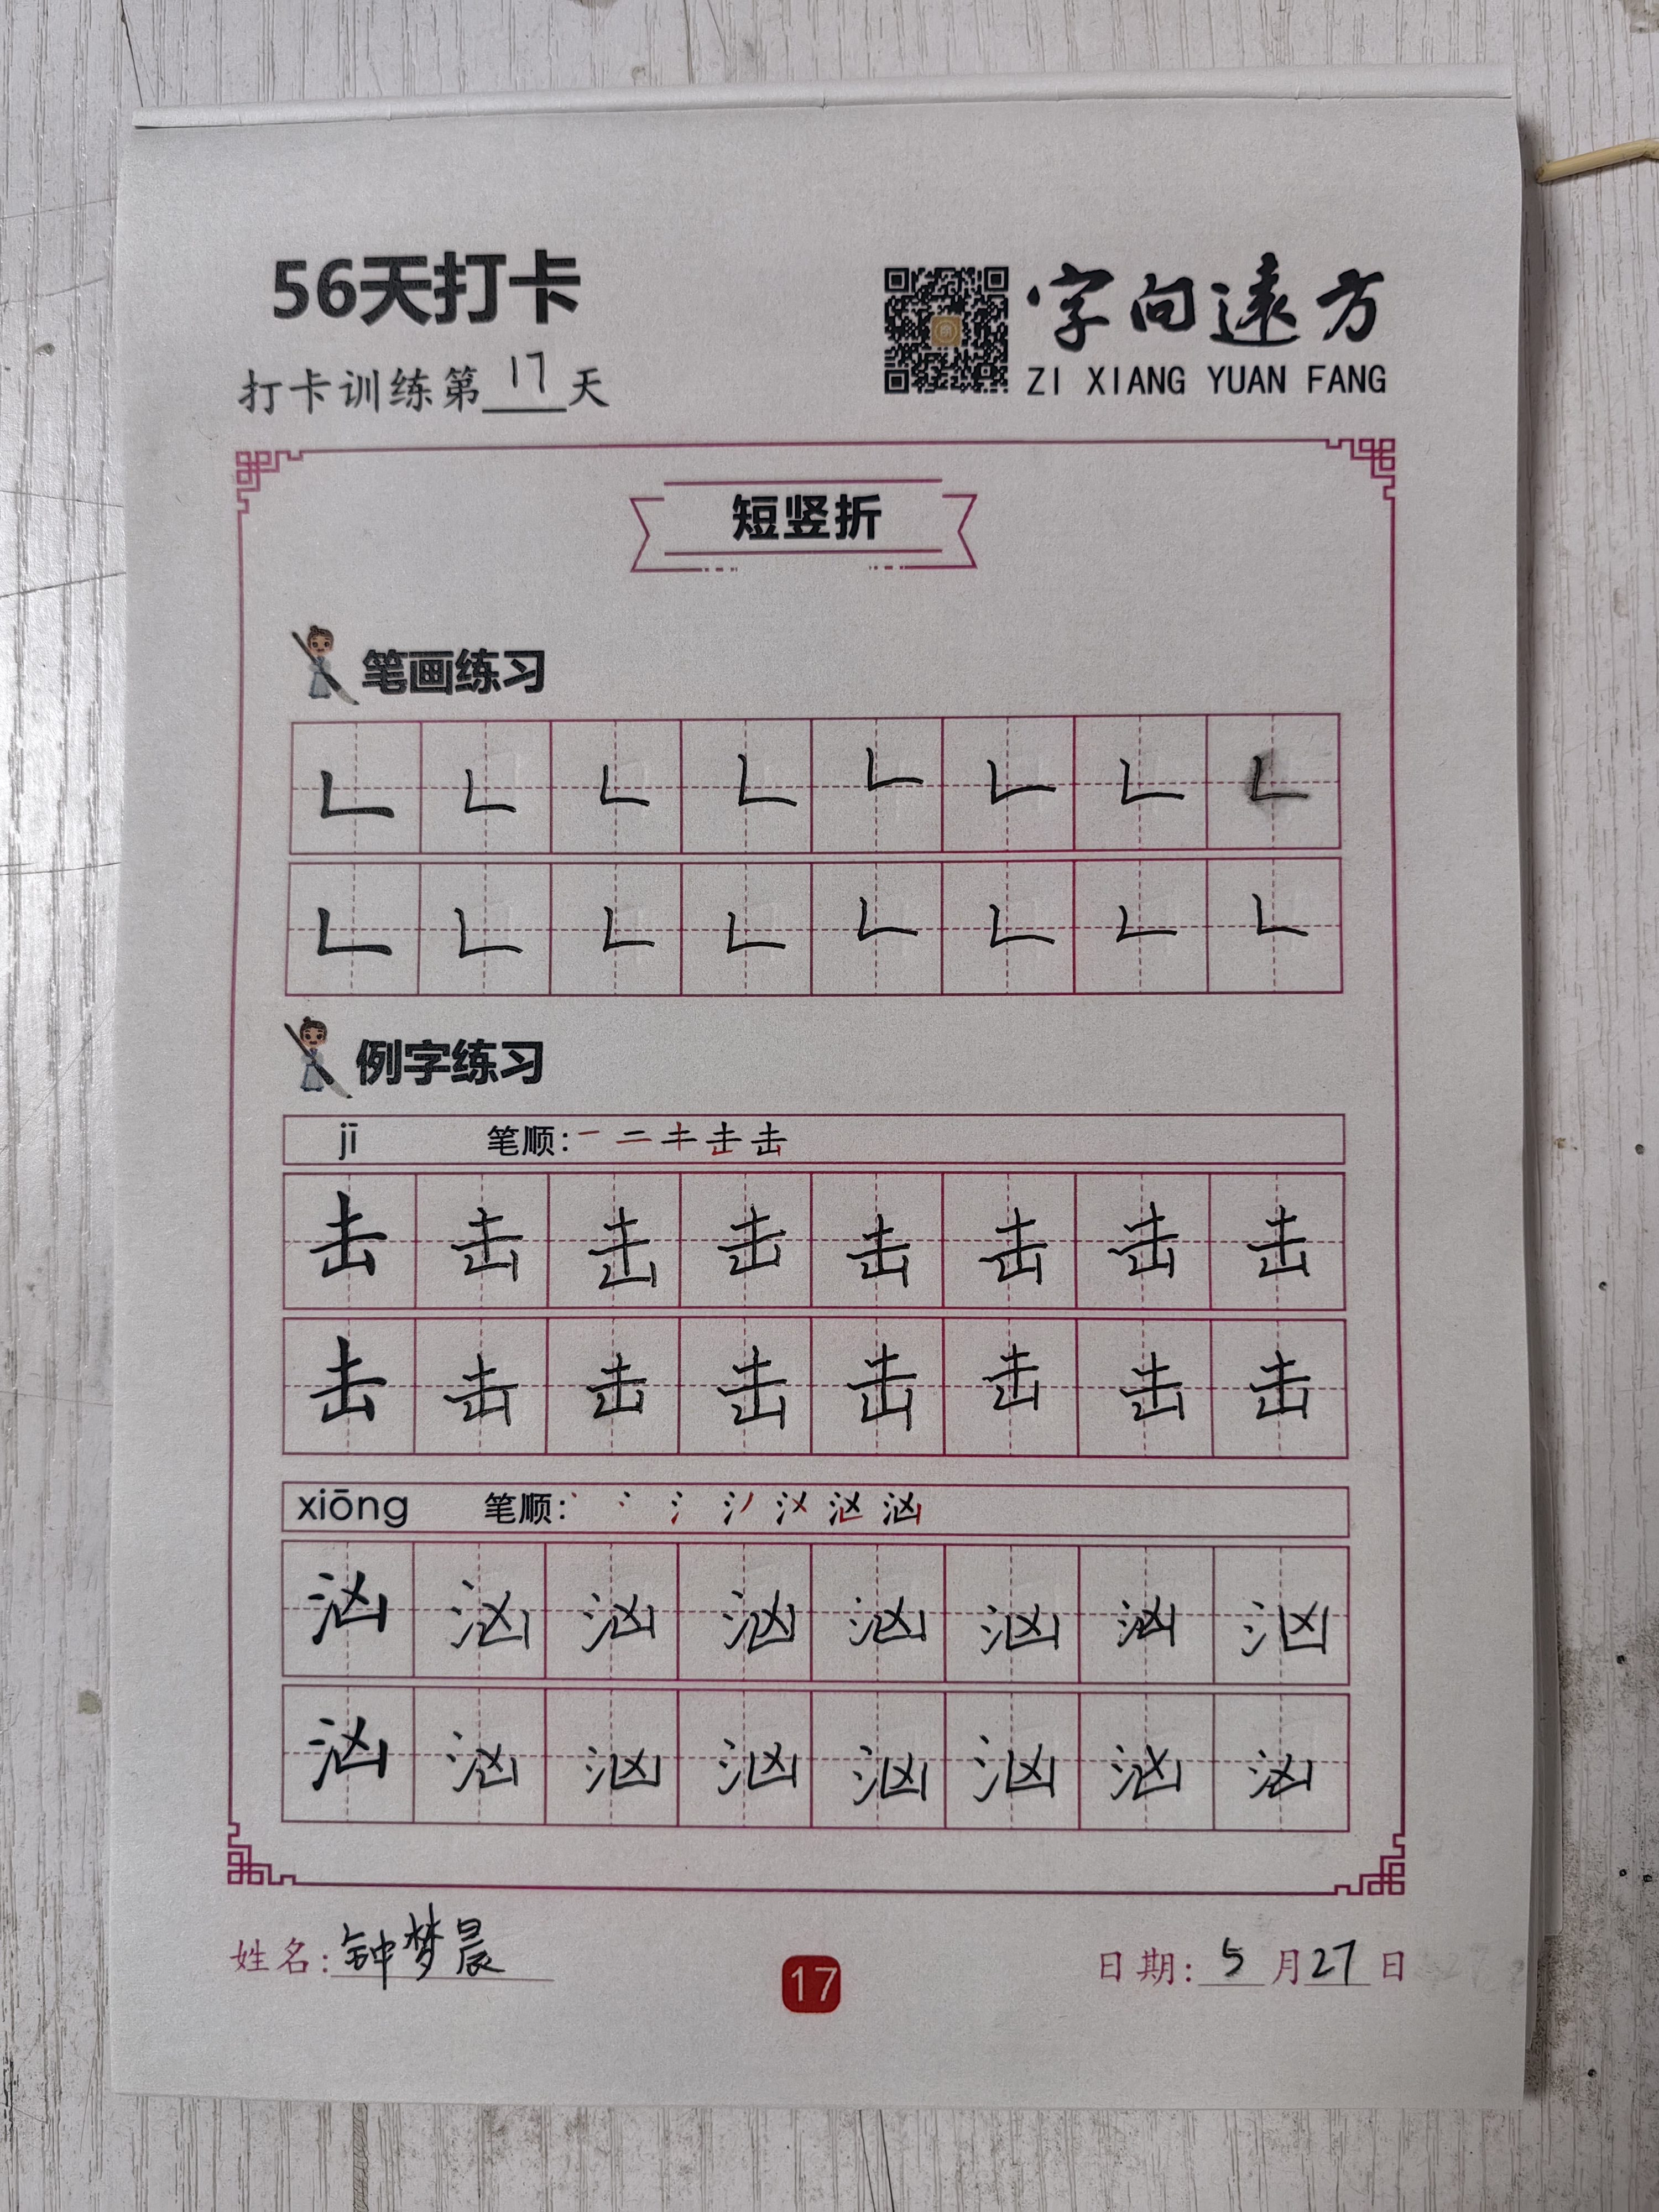 56天打卡
打卡训练第17天
字向遠方
ZI XIANG YUAN FANG
短竖折
笔画练习
例字练习
jī 笔顺:
击 击 击 击 击 击 击 击
击 击 击 击 击 击 击 击
xiōng 笔顺:
汹 汹 汹 汹 汹 汹 汹 汹
汹 汹 汹 汹 汹 汹 汹 汹
姓名:钟梦晨
17
日期:5月27日